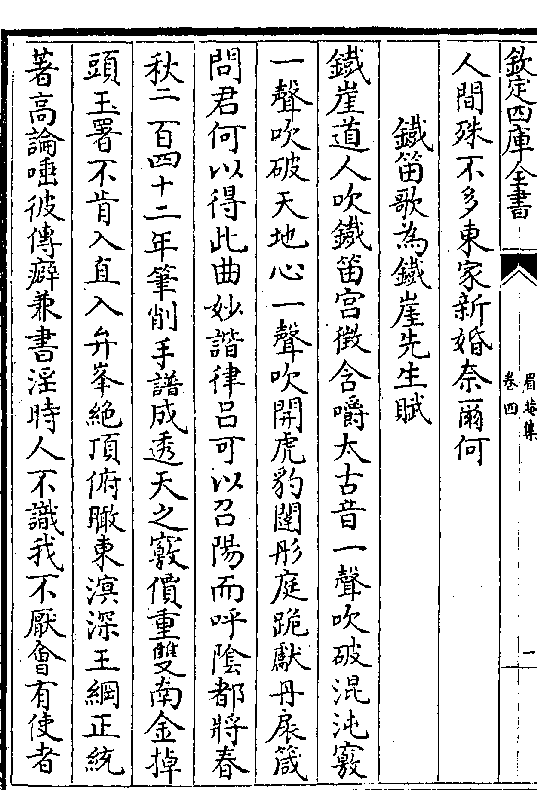 欽定四庫全書
眉菴集
卷四
一
人間殊不多東家新婚奈爾何
鐵笛歌為鐵崖先生賦
鐵崖道人吹鐵笛宫徵含嚼太古音一聲吹破混沌竅
一聲吹破天地心一聲吹開虎豹闥彤庭跪獻丹扆箴
問君何以得此曲妙諧律吕可以召陽而呼隂都將春
秋二百四十二年筆削手譜成透天之竅價重雙南金掉
頭玉署不肯入直入弁峯絶頂俯瞰東溟深王綱正統
著高論唾彼傳癖兼書淫時人不識我不厭㑹有使者